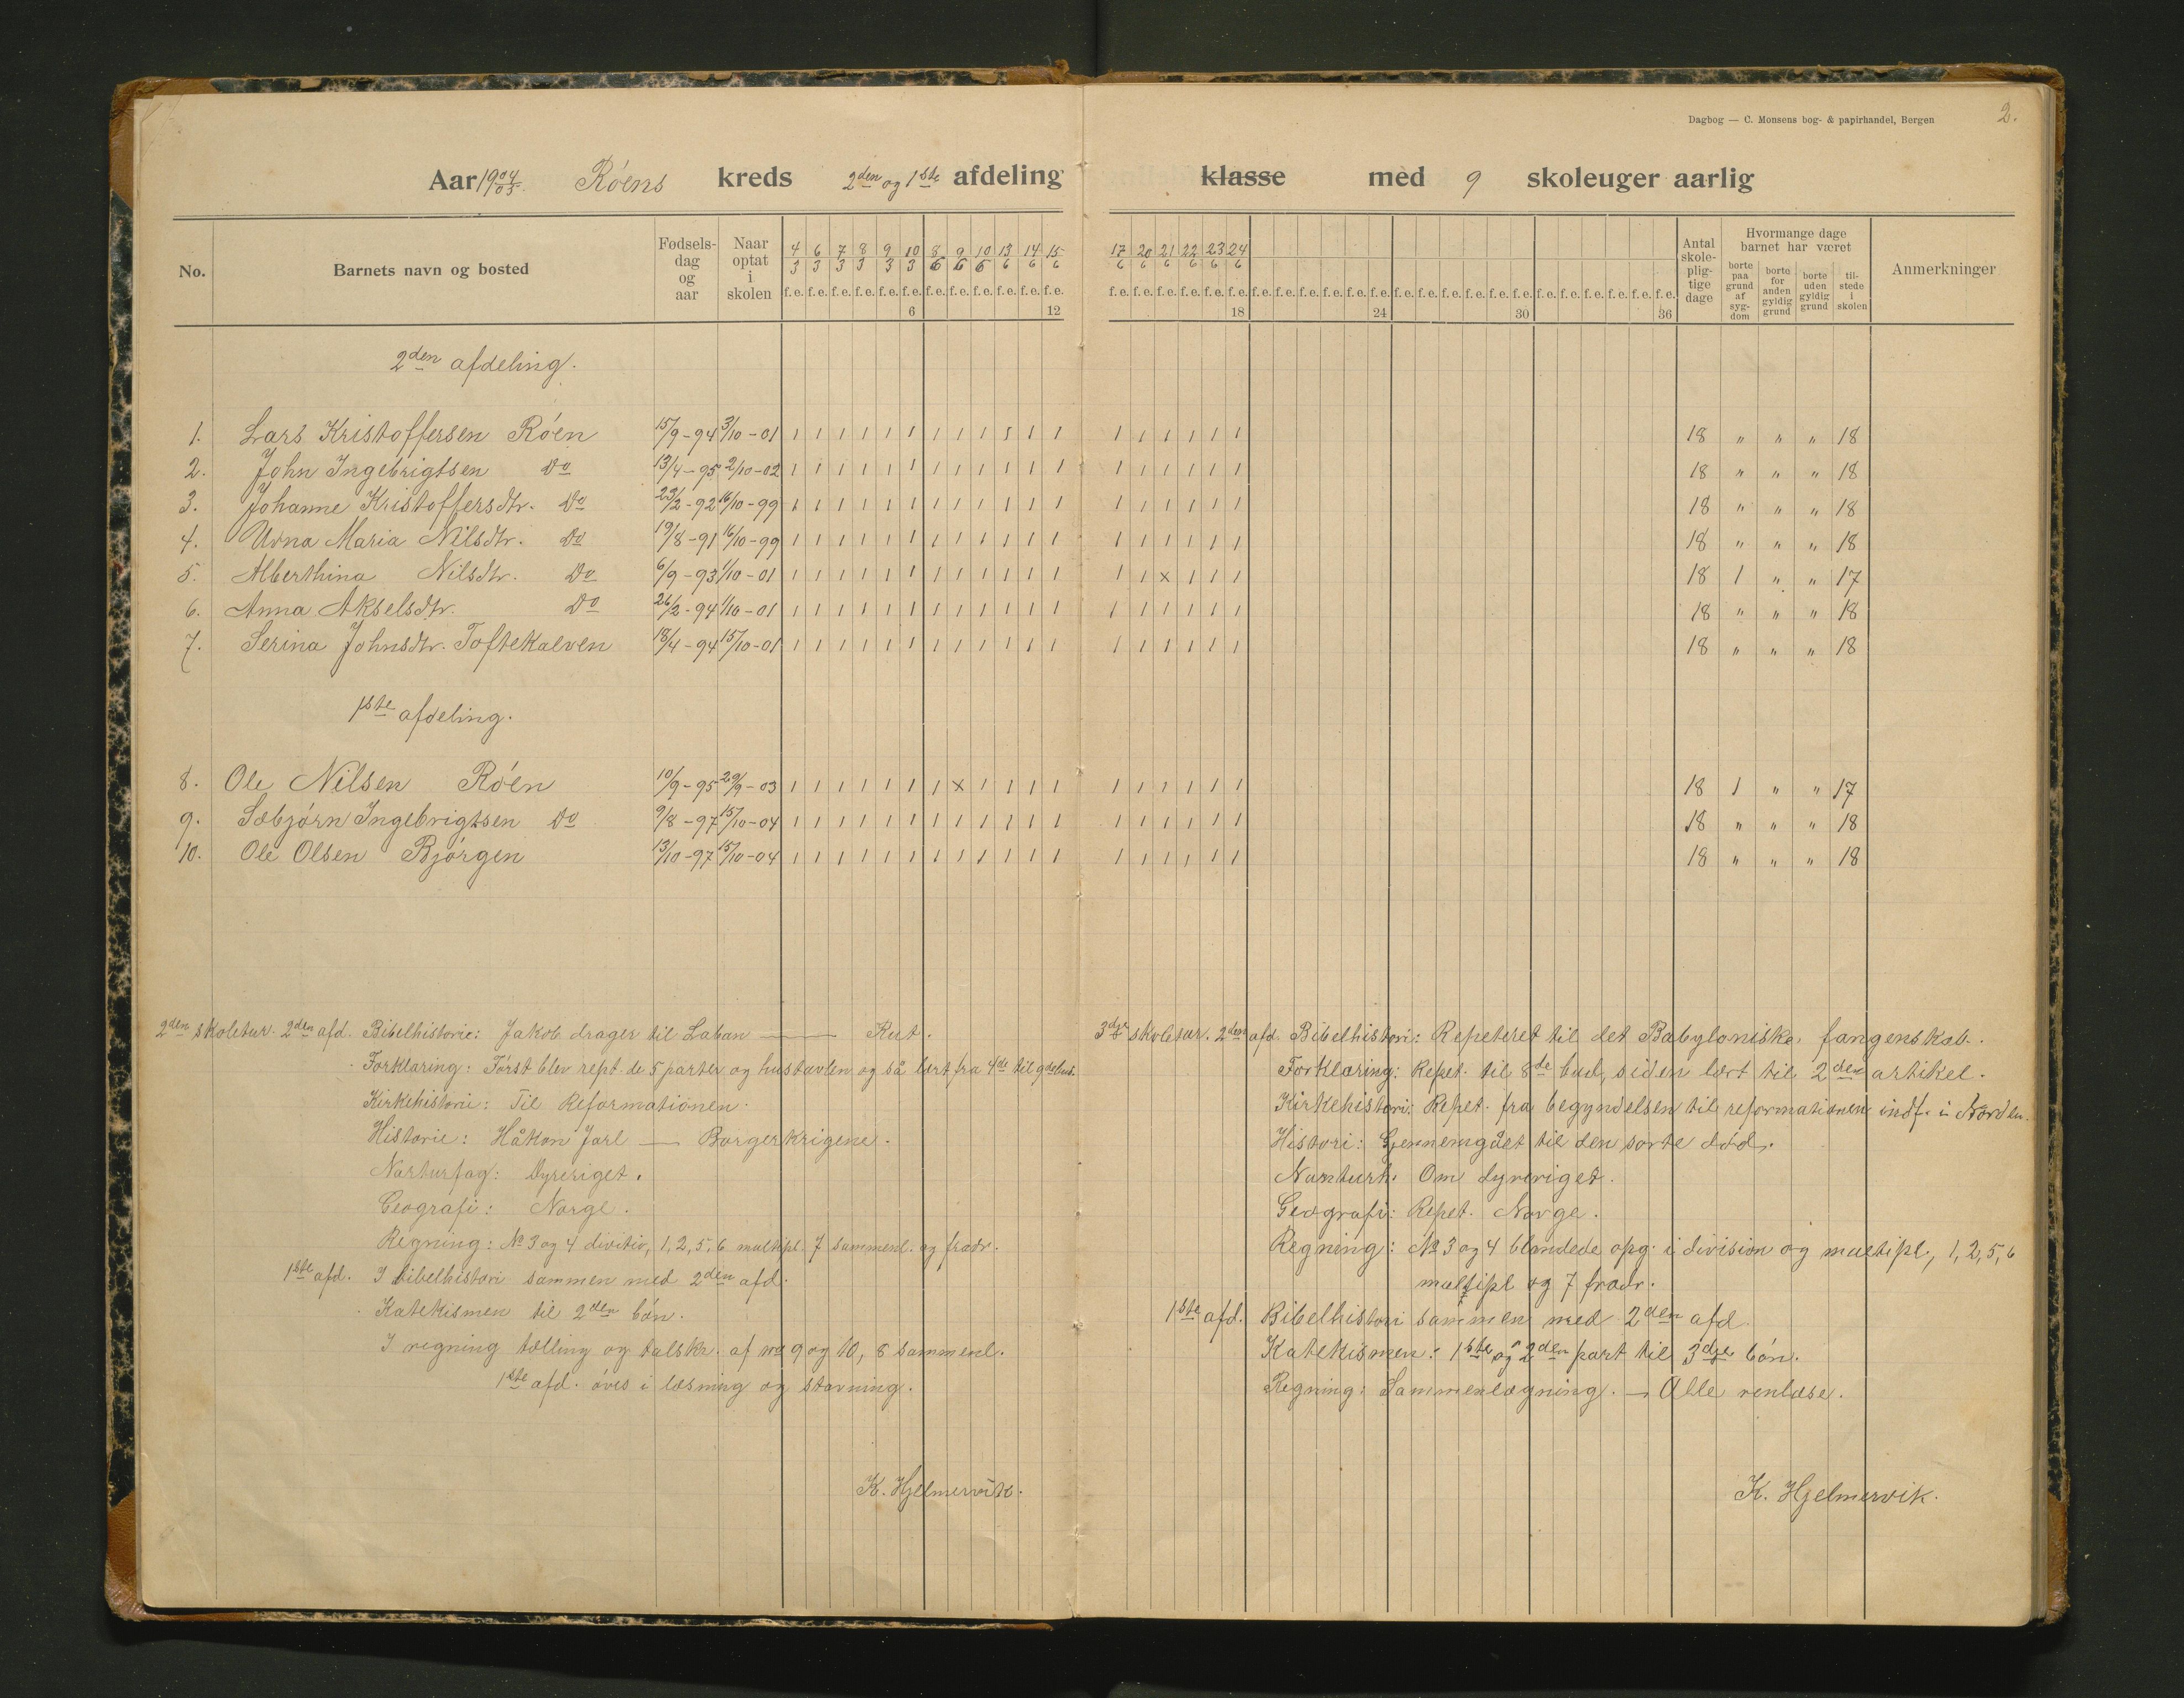 Dagbog — C. Monsens bog- & papirhandel, Bergen 2.
Aar 1904/05. Róens kreds 2den og 1ste afdeling klasse med 9 skoleuger aarlig
No. Barnets navn og bosted Fødselsdag og aar Naar optat i skolen 4/3 6/3 7/3 8/3 9/3 10/3 8/6 9/6 10/6 13/6 14/6 15/6 17/6 20/6 21/6 22/6 23/6 24/6 Antal skolepligtige dage Hvormange dage barnet har været Anmerkninger
borte paa grund af sygdom borte for anden gyldig grund borte uden gyldig grund tilstede i skolen
f. e. f. e. f. e. f. e. f. e. f. e. f. e. f. e. f. e. f. e. f. e. f. e. f. e. f. e. f. e. f. e. f. e. f. e. f. e. f. e. f. e. f. e. f. e. f. e. f. e. f. e. f. e. f. e. f. e. f. e. f. e. f. e. f. e. f. e. f. e. f. e.
6 12 18 24 30 36
2den afdeling.
1. Lars Kristoffersen Róen 15/9-94 3/10-01 1 1 1 1 1 1 1 1 1 1 1 1 1 1 1 1 1 1 18 " " " 18
2. John Ingebrigtsen Do 13/4-95 2/10-02 1 1 1 1 1 1 1 1 1 1 1 1 1 1 1 1 1 1 18 " " " 18
3. Johanne Kristoffersdtr. Do 23/2-92 16/10-99 1 1 1 1 1 1 1 1 1 1 1 1 1 1 1 1 1 1 18 " " " 18
4. Maria Nilsdtr. Do 19/8-91 16/10-99 1 1 1 1 1 1 1 1 1 1 1 1 1 1 1 1 1 1 18 " " " 18
5. Alberthina Nilsdtr. Do 6/9-93 1/10-01 1 1 1 1 1 1 1 1 1 1 1 1 1 1 x 1 1 1 18 1 " " 17
6. Anna Akselsdtr. Do 26/2-94 1/10-01 1 1 1 1 1 1 1 1 1 1 1 1 1 1 1 1 1 1 18 " " " 18
7. Serina Johnsdtr. Toftekalven 18/4-94 15/10-01 1 1 1 1 1 1 1 1 1 1 1 1 1 1 1 1 1 1 18 " " " 18
1ste afdeling.
8. Ole Nilsen Róen 10/9-95 29/9-03 1 1 1 1 1 1 1 x 1 1 1 1 1 1 1 1 1 1 18 1 " " 17
9. Sæbjórn Ingebrigtsen Do 9/8-97 15/10-04 1 1 1 1 1 1 1 1 1 1 1 1 1 1 1 1 1 1 18 " " " 18
10. Ole Olsen Bjórgen 13/10-97 15/10-04 1 1 1 1 1 1 1 1 1 1 1 1 1 1 1 1 1 1 18 " " " 18
2den skoletur. 2den afd. Bibelhistorie: Jakob drager til Laban —— Rut.
Forklaring: Fórst blev rept. de 5 parter og hustavlen og så lært fra 4de til 9de bud.
Kirkehistorie: Til Reformationen.
Historie: Håkon Jarl — Borgerkrigene.
Narturfag: Dyreriget.
Geografi: Norge.
Regning: No 3 og 4 divitio, 1, 2, 5, 6 multipl. 7 sammenl. og fradr.
1ste afd. I bibelhistori sammen med 2den afd.
Katekismen til 2den bón.
I regning tælling og talskr. af no 9 og 10, 8 sammenl.
1ste afd. óves i læsning og stavning.
K. Hjelmervik.
3dje skoletur. 2den afd. Bibelhistori: Repeteret til det Babyloniske fangenskab.
Forklæring: Repet. til 8de bud, siden lært til 2den artikel.
Kirkehistori: Repet. fra begyndelsen til reformationen indf. i Norden.
Histori: Gjennemgået til den sorte død.
Om dyreriget.
Geografi: Repet. Norge.
Regning: No 3 og 4 blandede opg. i division og multipl., 1, 2, 5, 6
multipl og 7 fradr.
1ste afd. Bibelhistori sammen med 2den afd.
Katekismen: 1ste og 2den part til 3dje bón.
Regning: Sammenlægning. — Alle renlæse.
K. Hjelmervik.